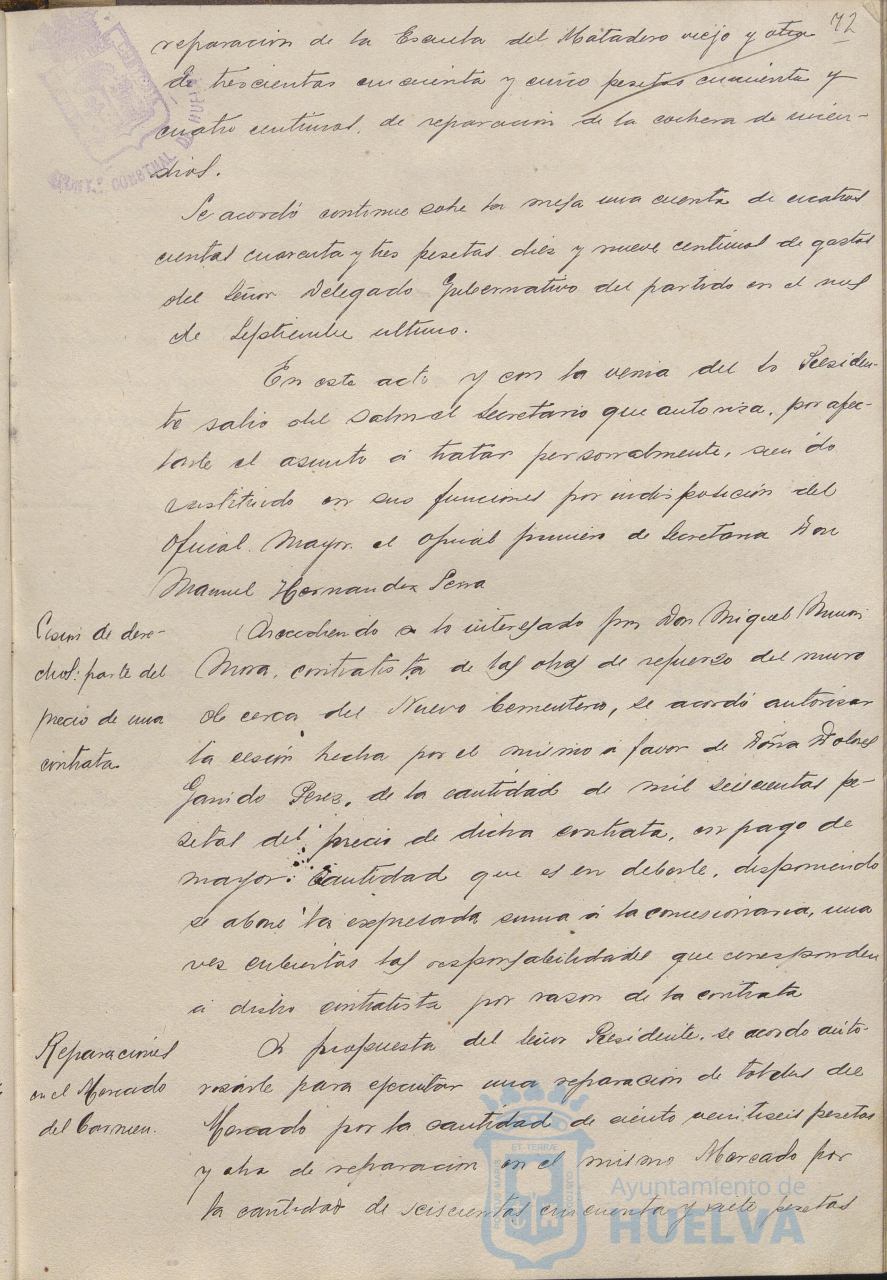 72
reparacion de la Escuela del Matadero viejo y otra
de trescientas cincuenta y cinco pesetas cincuenta y
cuatro centimos, de reparacion de la cochera de incen-
dios.
Se acordó continue sobre la mesa una cuenta de cuatros
cientas cuarenta y tres pesetas diez y nueve centimos de gastos
del Señor Delegado Gubernativo del partido en el mes
de Septiembre ultimo.
En este acto y con la venia del Sr Presiden-
te salio del Salon el Secretario que autoriza, por afec-
tarle el asunto á tratar personalmente, siendo
sustituido en sus funciones por indisposición del
Oficial Mayor el oficial primero de Secretaria Don
Manuel Hernandez Serra
Cesion de dere-
chos: parte del
precio de una
contrata
Accediendo a lo interesado por Don Miguel
Mora, contratista de las obras de refuerzo del muro
de cerca del Nuevo Cementerio, se acordó autorizar
la cesión hecha por el mismo a favor de Doña Dolores
Garrido Perez, de la cantidad de mil seiscientas pe-
setas del precio de dicha contrata, en pago de
mayor cantidad que es en deberle, disponiendo
se abone la expresada suma á la concesionaria, una
vez cubiertas las responsabilidades que corresponden
á dicho contratista por razon de la contrata
Reparaciones
en el Mercado
del Carmen.
A propuesta del Señor Presidente, se acordo auto-
rizarle para ejecutar una reparacion de toldos del
Mercado por la cantidad de ciento veintiseis pesetas
y otra de reparacion en el mismo Mercado por
la cantidad de seiscientas cincuenta y siete pesetas
Ayuntamiento de
HUELVA